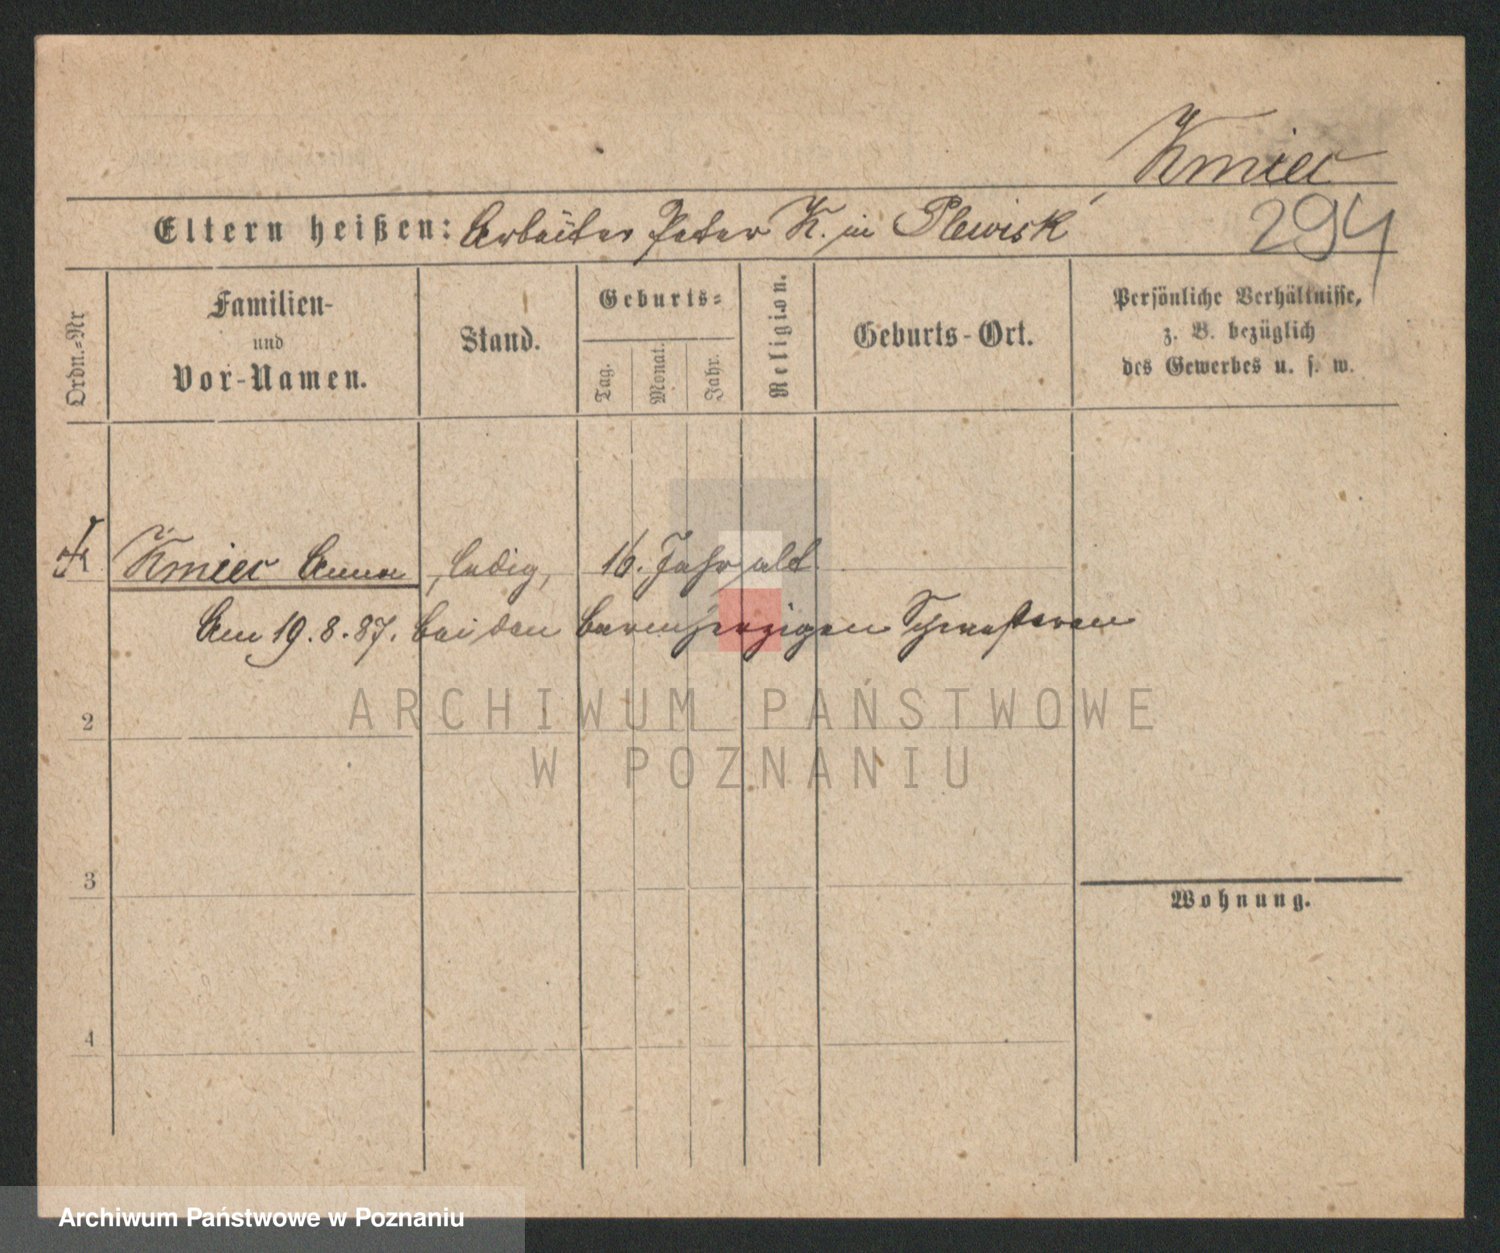 Kmiec
294
Eltern heißen: Arbeiter Peter K. in Plewisk
Ordn.-Nr
Familien-
und
Vor-Namen.
Stand.
Geburts-
Tag.
Monat.
Jahr.
Religion.
Geburts-Ort.
Persönliche Verhältnisse,
z. B. bezüglich
des Gewerbes u. s. w.
Kmiec Anna, ledig, 16. Jahr alt
Am 19.8.87. bei den barmherzigen Schwestern
2
3
Wohnung.
4
ARCHIWUM PAŃSTWOWE
W POZNANIU
Archiwum Państwowe w Poznaniu